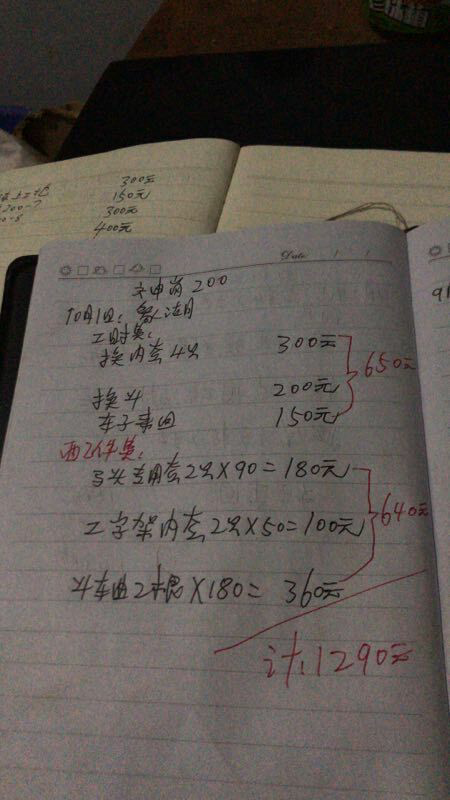 300元
150元
300元
400元
Date
200
10月1日:
工时费:
换内套4只 300元
650元
换斗 200元
150元
配件费:
马头专用套2只×90=180元
640元
工字架内套2只×50=100元
斗车曲2根×180=360元
计:1290元